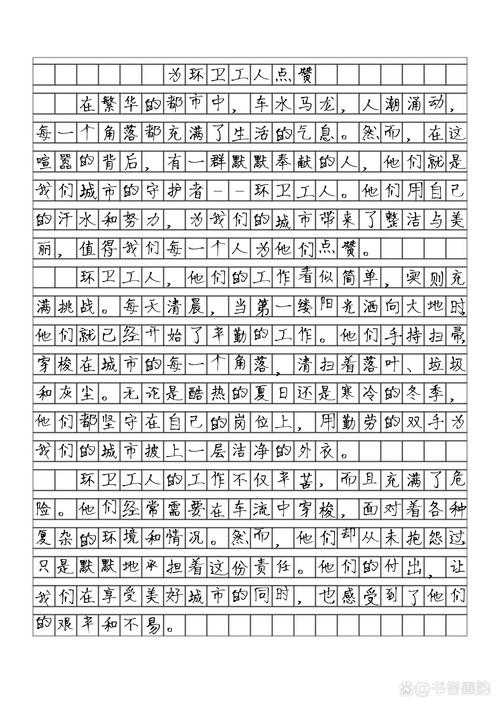 为环卫工人点赞
在繁华的都市中，车水马龙，人潮涌动，
每一个角落都充满了生活的气息。然而，在这
喧嚣的背后，有一群默默奉献的人，他们就是
我们城市的守护者——环卫工人。他们用自己
的汗水和努力，为我们的城市带来了整洁与美
丽，值得我们每一个人为他们点赞。
环卫工人，他们的工作看似简单，实则充
满挑战。每天清晨，当第一缕阳光洒向大地时，
他们就已经开始了辛勤的工作。他们手持扫帚，
穿梭在城市的每一个角落，清扫着落叶、垃圾
和灰尘。无论是酷热的夏日还是寒冷的冬季，
他们都坚守在自己的岗位上，用勤劳的双手为
我们的城市披上一层洁净的外衣。
环卫工人的工作不仅辛苦，而且充满了危
险。他们经常需要在车流中穿梭，面对着各种
复杂的环境和情况。然而，他们却从未抱怨过，
只是默默地承担着这份责任。他们的付出，让
我们在享受美好城市的同时，也感受到了他们
的艰辛和不易。